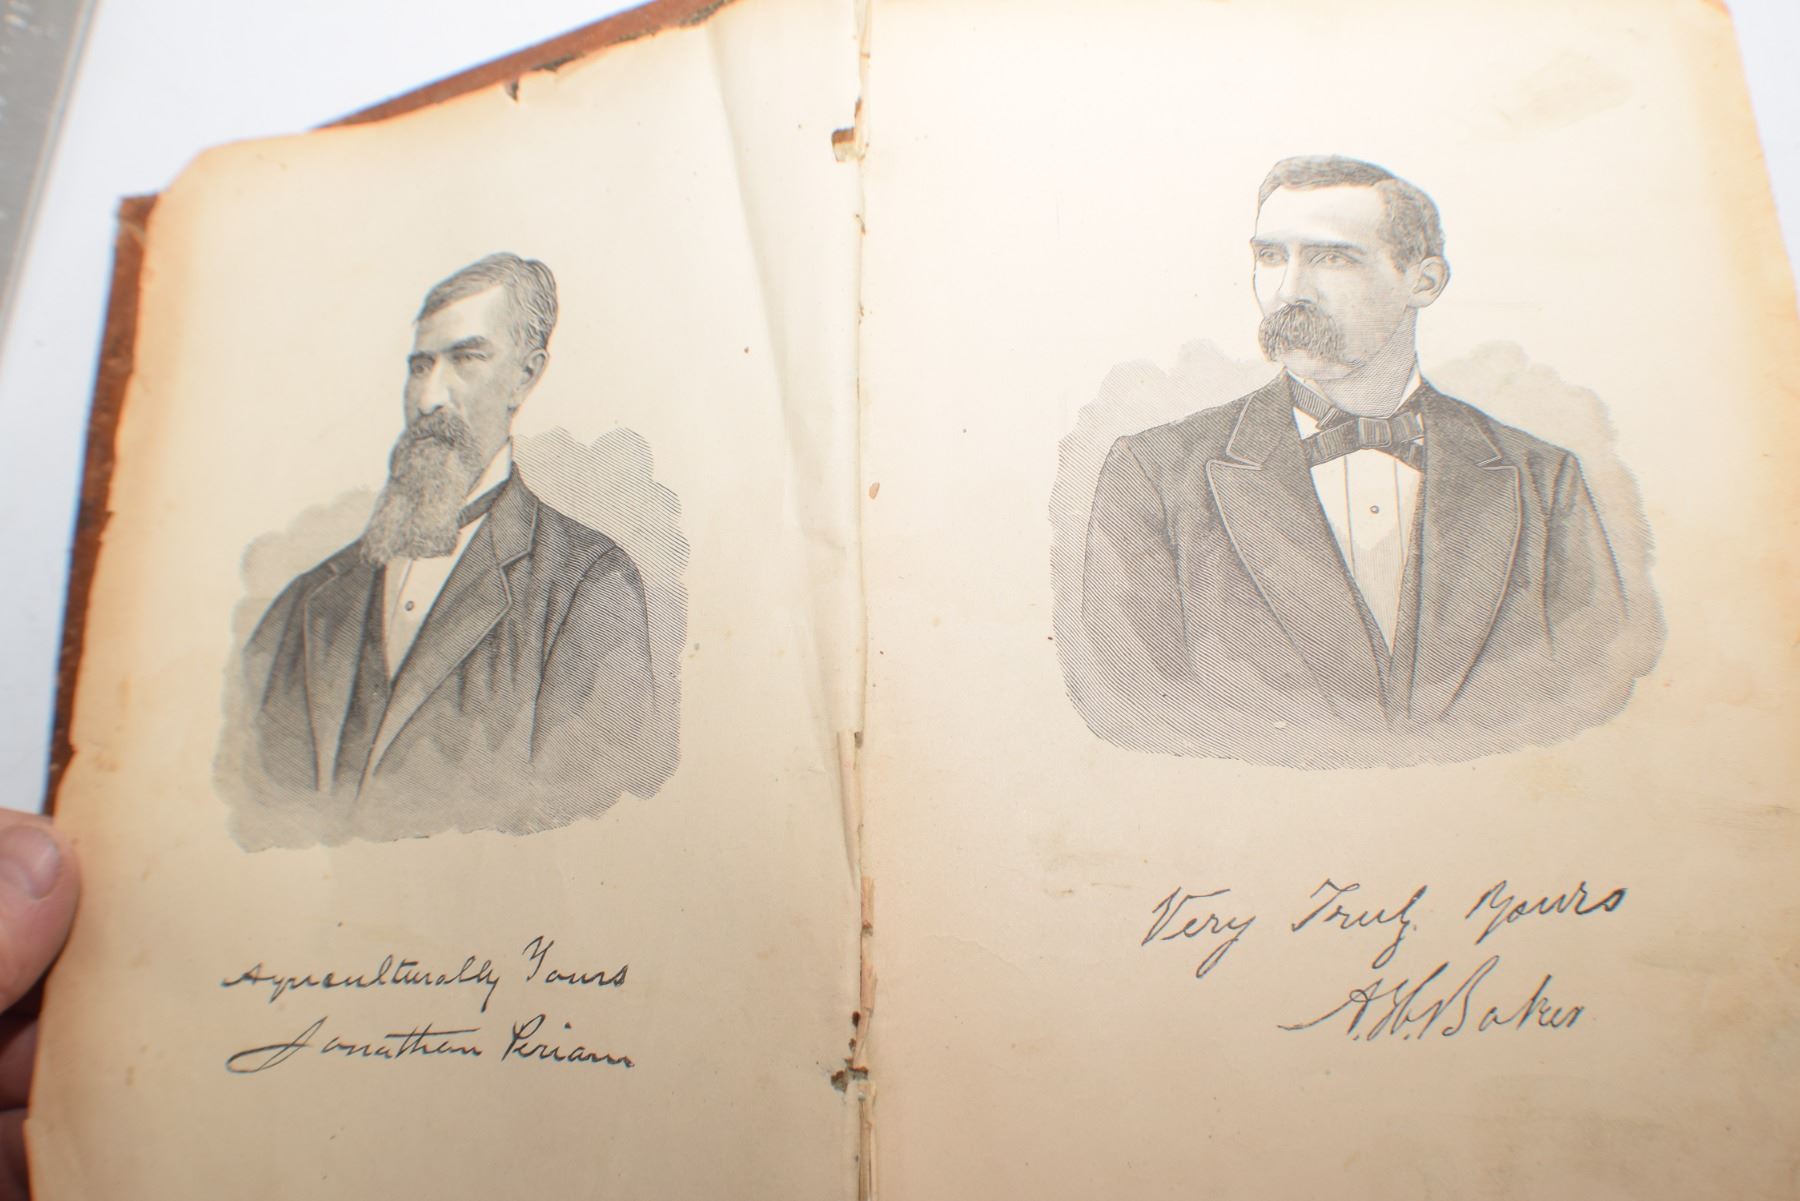 Agriculturally Yours
Jonathan Periam
Very Truly Yours
A. H. Baker